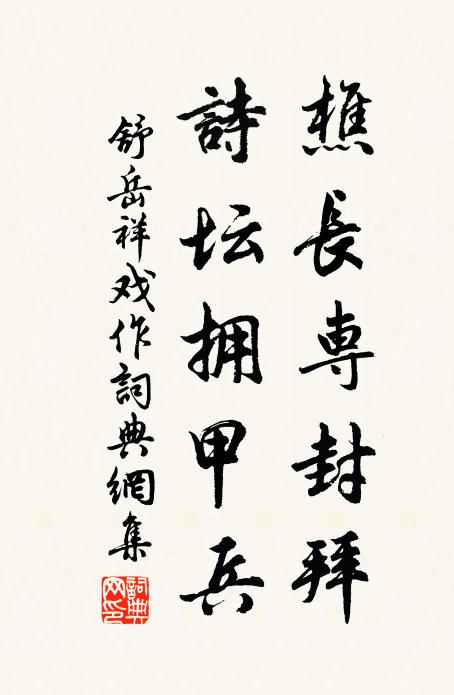 樵長専封拜
詩坛拥甲兵
舒岳祥戏作詞典網集
詞典网印